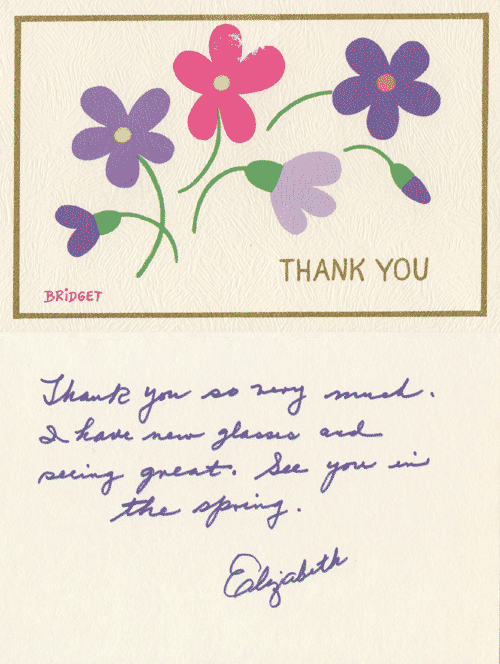 THANK YOU
BRiDGET
Thank you so very much.
I have new glasses and
seeing great. See you in
the spring.
Elizabeth